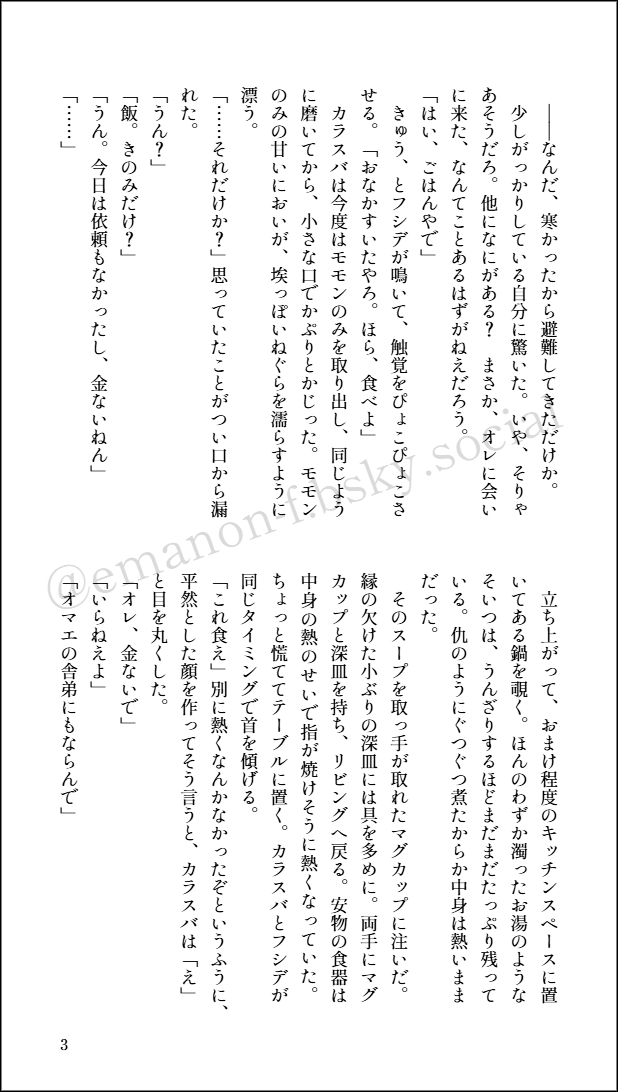 ――なんだ、寒かったから避難してきただけか。
少しがっかりしている自分に驚いた。いや、そりゃ
あそうだろ。他になにがある？　まさか、オレに会い
に来た、なんてことあるはずがねえだろう。
「はい、ごはんやで」
きゅう、とフシデが鳴いて、触覚をぴょこぴょこさ
せる。「おなかすいたやろ。ほら、食べよ」
カラスバは今度はモモンのみを取り出し、同じよう
に磨いてから、小さな口でかぷりとかじった。モモン
のみの甘いにおいが、埃っぽいねぐらを濡らすように
漂う。
「……それだけか？」思っていたことがつい口から漏
れた。
「うん？」
「飯。きのみだけ？」
「うん。今日は依頼もなかったし、金ないねん」
「……」
立ち上がって、おまけ程度のキッチンスペースに置
いてある鍋を覗く。ほんのわずか濁ったお湯のような
そいつは、うんざりするほどまだまだたっぷり残って
いる。仇のようにぐつぐつ煮たからか中身は熱いまま
だった。
そのスープを取っ手が取れたマグカップに注いだ。
縁の欠けた小ぶりの深皿には具を多めに。両手にマグ
カップと深皿を持ち、リビングへ戻る。安物の食器は
中身の熱のせいで指が焼けそうに熱くなっていた。
ちょっと慌ててテーブルに置く。カラスバとフシデが
同じタイミングで首を傾げる。
「これ食え」別に熱くなんかなかったぞというふうに、
平然とした顔を作ってそう言うと、カラスバは「え」
と目を丸くした。
「オレ、金ないで」
「いらねえよ」
「オマエの舎弟にもならんで」
@emanon-f.bsky.social
3